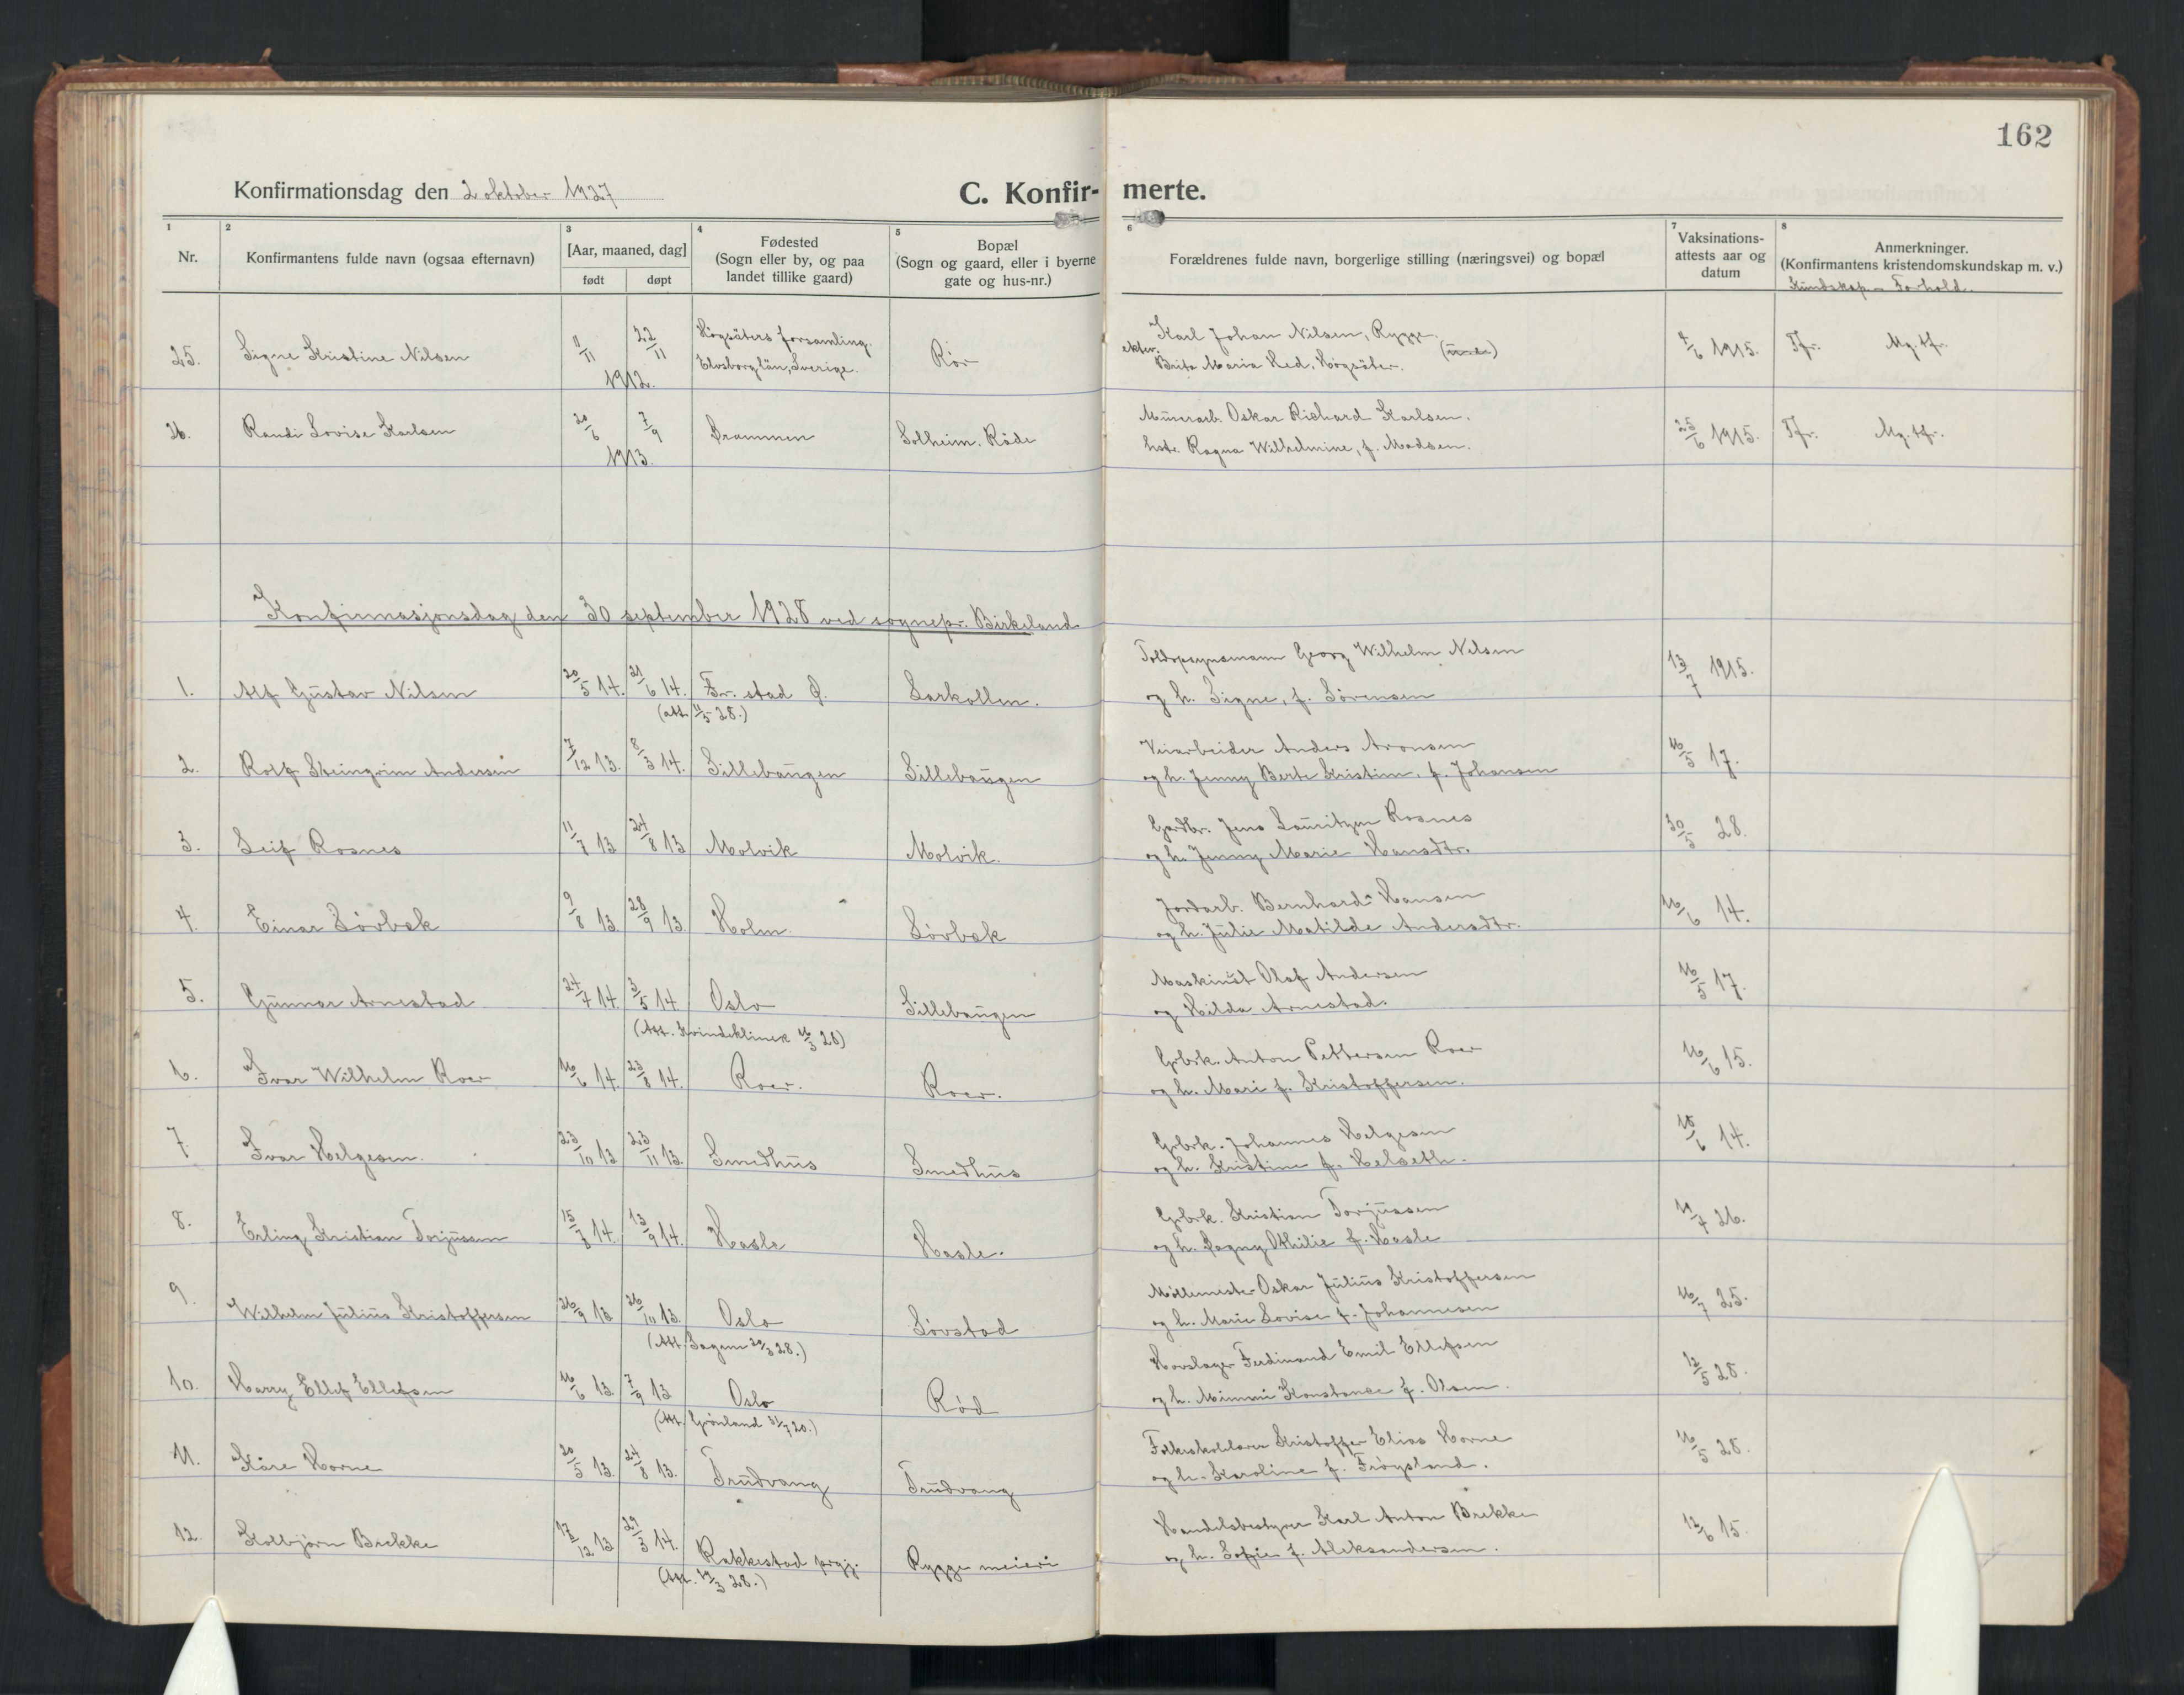 162
Konfirmationsdag den 2 oktober 1927
C. Konfir- merte.
1 2 3 4 5 6 7 8
Nr.
Konfirmantens fulde navn (ogsaa efternavn)
[Aar, maaned, dag]
født døpt
Fødested
(Sogn eller by, og paa
landet tillike gaard)
Bopæl
(Sogn og gaard, eller i byerne
gate og hus-nr.)
Forældrenes fulde navn, borgerlige stilling (næringsvei) og bopæl
Vaksinations-
attests aar og
datum
Anmerkninger.
(Konfirmantens kristendomskundskap m. v.)
Kundskap. - Forhold.
25. Signe Kristine Nilsen 11/11 22/11 1912. Högsäters forsamling. Elvsborg län, Sverige. Rör
Karl Johan Nilsen, Rygge.
Brita Maria Hed, Högsäter.
4/6 1915. Tfr. Mg. tfr.
26. Randi Lovise Karlsen 20/6 7/9 1913. Drammen Solheim. Råde
Murerarb. Oskar Richard Karlsen.
hst. Ragna Wilhelmine, f. Madsen.
25/6 1915. Tfr. Mg. tfr.
Konfirmasjonsdag den 30 september 1928 ved sognepr. Birkeland.
1. Alf Gustav Nilsen 20/5 14. 21/6 14. Fr.stad Ø. Larkollen.
(att. 11/5 28.)
Toldopsynsmann Georg Wilhelm Nilsen
og h. Signe, f. Sørensen
13/7 1915.
2. Rolf Steingrim Andersen 7/12 13. 8/3 14. Sillebaugen Sillebaugen
Veiarbeider Anders Aronsen
og h. Jenny Berte Kristine, f. Johansen
16/5 17.
3. Leif Rosnes 11/7 13 24/8 13 Molvik Molvik.
Gardbr. Jens Lauritzen Rosnes
og h. Jenny Marie Hansdtr.
30/5 28.
4. Einar Lövbak 9/8 13. 28/9 13. Holm. Lövbak
Jordarb. Bernhard Hansen
og h. Julie Matilde Andersdtr.
16/6 14.
5. Gunnar Arnestad 24/4 14. 3/5 14 Oslo Sillebaugen
(Att. Kvindeklinik 16/3 28)
Maskinist Olaf Andersen
og Hilda Arnestad.
16/5 17.
6. Ivar Wilhelm Roer 16/6 14. 23/8 14. Roer. Roer.
Grbrk. Anton Pettersen Roer
og h. Mari f. Kristoffersen.
16/6 15.
7. Ivar Helgesen. 23/10 13 23/11 13. Smedhus Smedhus
Grbrk. Johannes Helgesen
og h. Kristine f. Helseth.
18/6 14.
8. Erling Kristian Torjussen 15/8 14. 13/9 14. Hasle Hasle.
Grbrk. Kristian Torjussen
og h. Dagny Othilie f. Hasle
19/7 26.
9. Wilhelm Julius Kristoffersen 26/9 13 26/10 13. Oslo Lövstad
(Att. Sagene 20/3 28.)
Möllemester Oskar Julius Kristoffersen
og h. Marie Lovise f. Johannesen
16/7 25.
10. Harry Ellef Ellefsen 16/6 13 7/9 13 Oslo Röd
(Att. Grönland 31/7 20.)
Hovslager Ferdinand Emil Ellefsen
og h. Mimmi Konstanse f. Olsen.
12/5 28.
11. Kåre Horne 20/5 13. 24/8 13. Trudvang Trudvang
Folkeskolelærer Kristoffer Elias Horne
og h. Karoline f. Fröysland.
16/5 28.
12. Kolbjörn Brekke 17/12 13 29/3 14. Rakkestad prgj. Rygge meieri
(Att. 19/3 28.)
Handelsbestyrer Karl Anton Brekke
og h. Sofie f. Aleksandersen.
12/6 15.